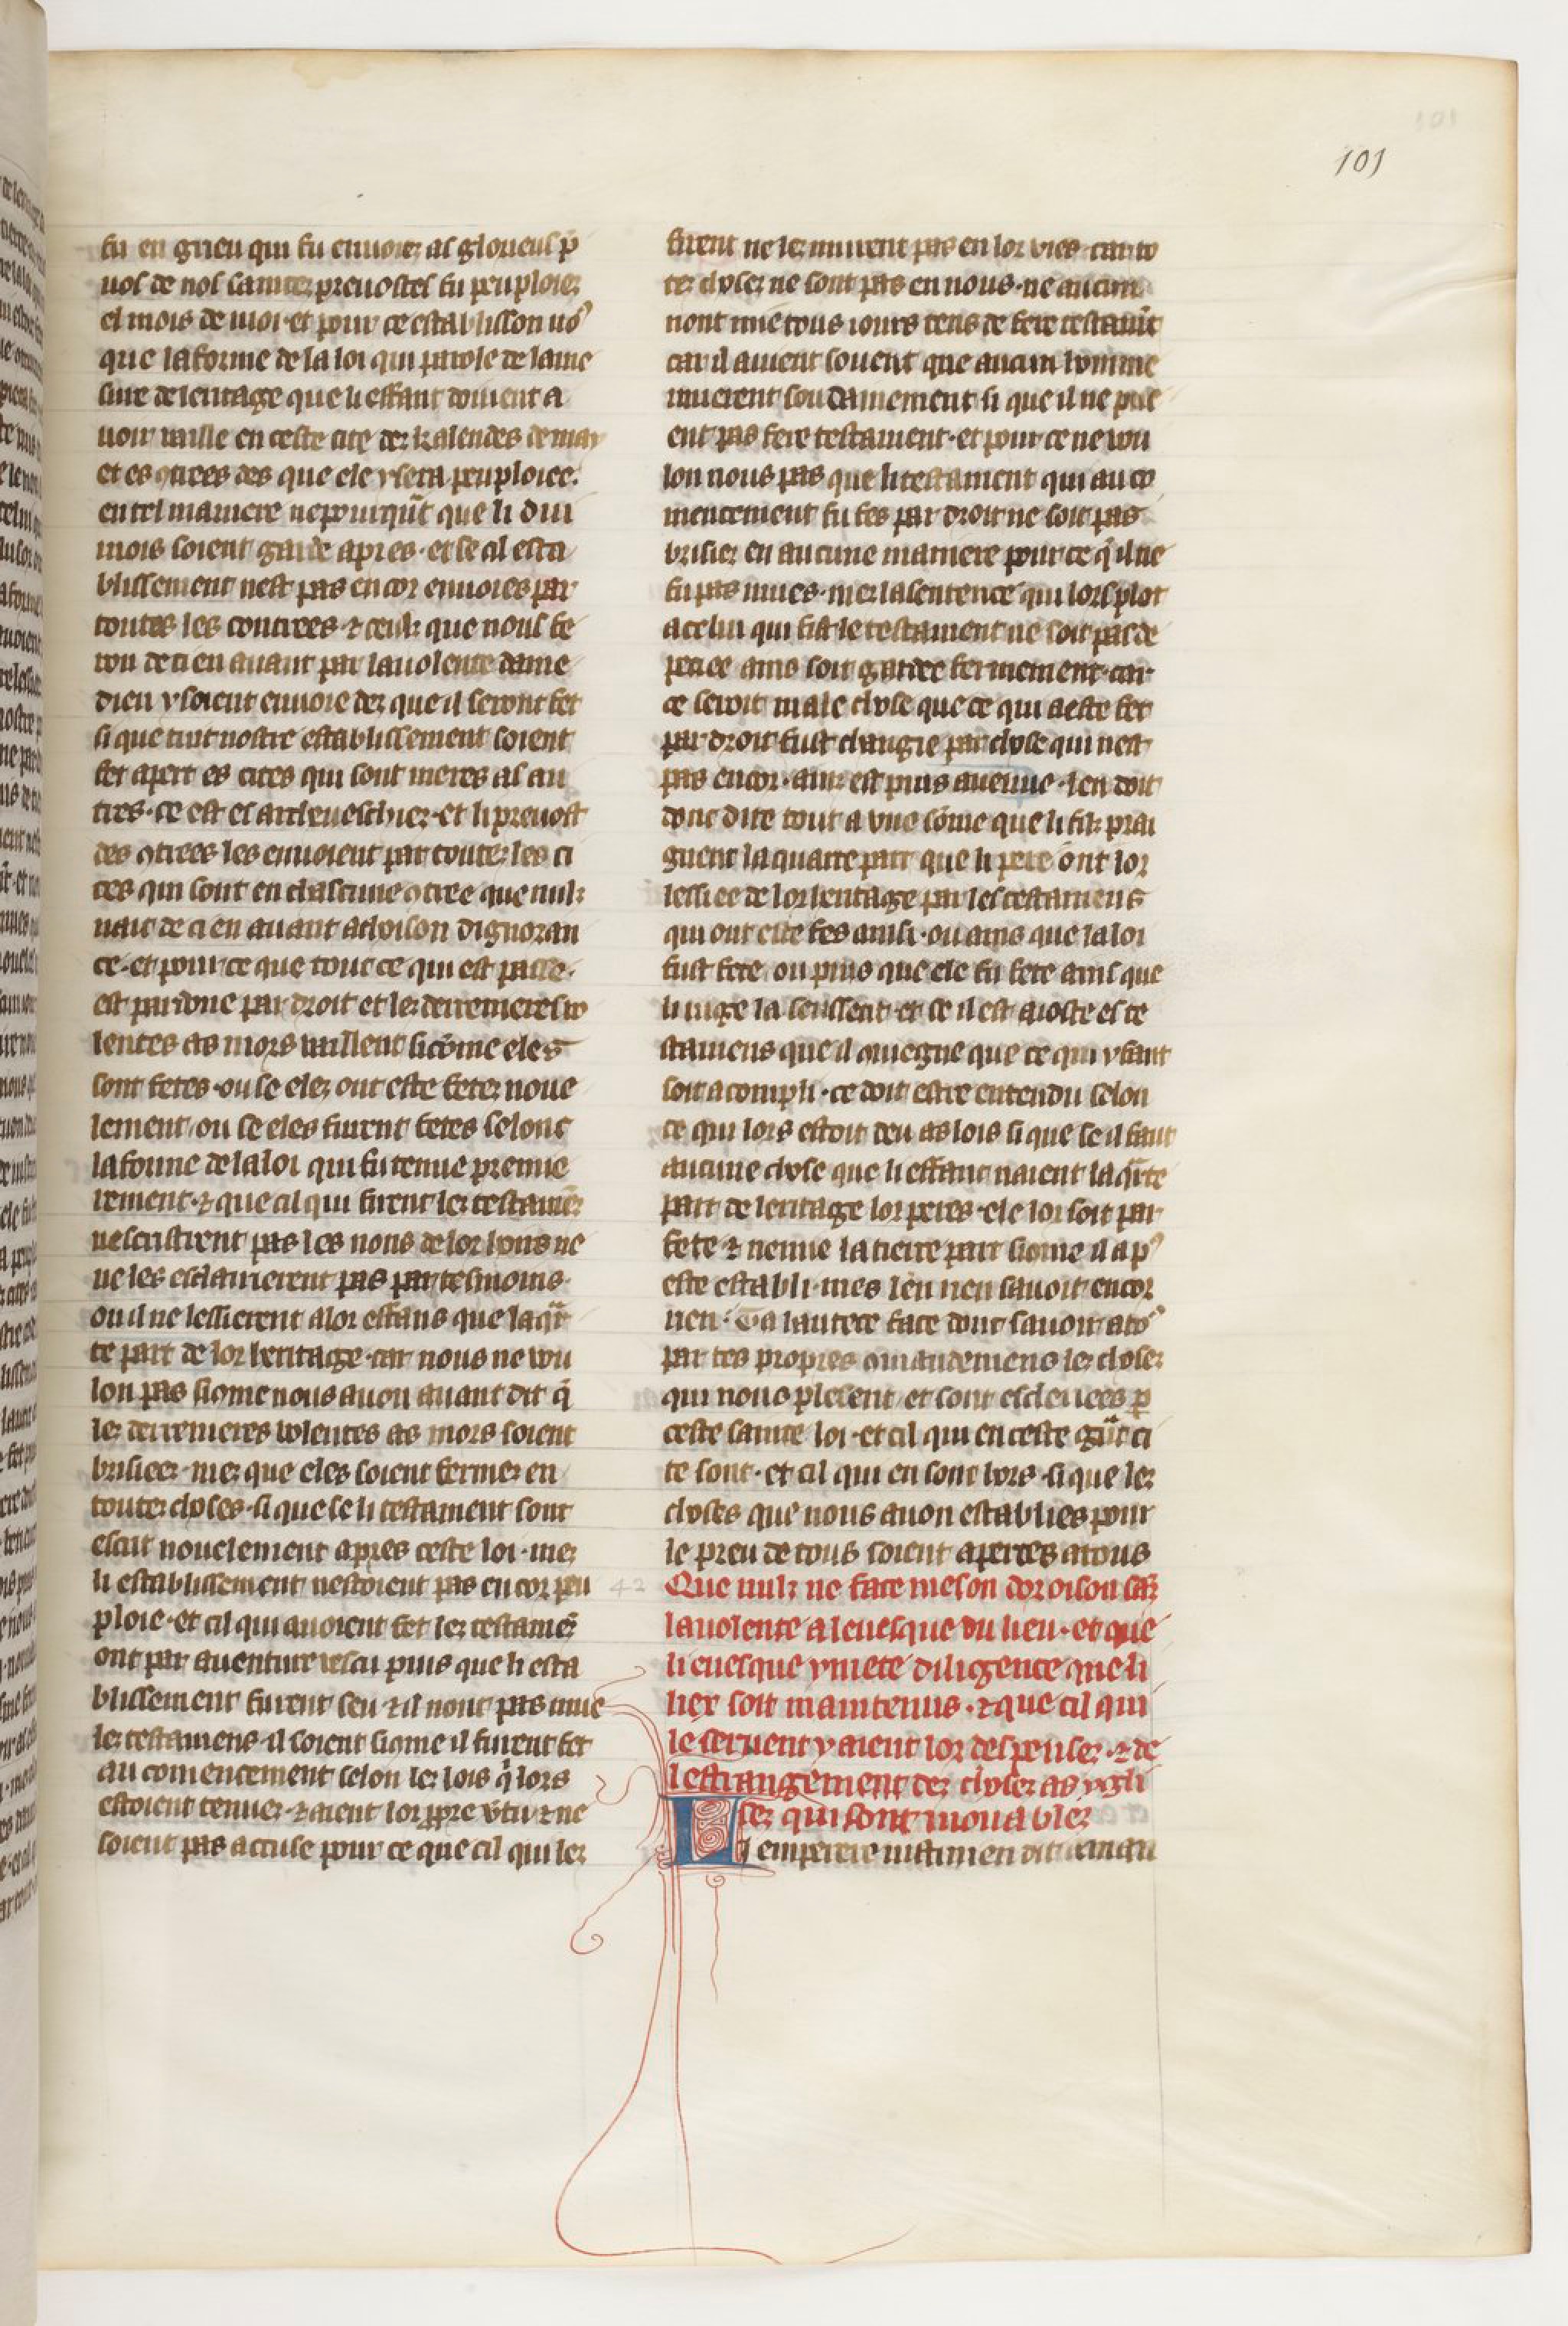 101
fu en grieu qui fu enuoiez as glorieus p̄
uos de nos saintez preuostes fu peuploiez
el mois de moi · et pour ce establisson no⁹
que la forme de la loi qui parole de lame
sure de leritage que li effant doiuent a
uoir uaille en ceste cite dez kalendes de may
et es ꝯtrees des que ele y sera peuploiee.
en tel maniere nepourqūt que li dui
mois soient garde apres · et se cil esta
blissement nest pas encor enuoies par
toutes les contrees ⁊ ceulz que nous fe
ron de ci en auant par la uolente dame
dieu y soient enuoie dez que il seront fet
si que tuit nostre establissement soient
fet apert es cites qui sont meres as au
tres · ce est es archeueschiez · et li preuost
des ꝯtrees les enuoient par toutez les ci
tes qui sont en chascune ꝯtree que nulz
nait de ci en auant achoison dignoran
ce · et pour ce que tout ce qui est passe ·
est pardone par droit et lez derrenieres vo
lentes as mors uaillent si cōme eles
sont fetes · ou se elez ont este fetez noue
lement ou se eles furent fetes selonc
la forme de la loi qui fu tenue premie
rement · ⁊ que cil qui firent lez testamēz
nescristrent pas les nons de lor hoirs ne
ne les esclairierent pas par tesmoins ·
ou il ne lessierent a lor effans que la qr̄
te part de lor heritage · car nous ne vou
lon pas si ꝯme nous auon auant dit q̄
lez derrenieres volentes as mors soient
brisieez · mez que eles soient fermez en
toutez choses · si que se li testament sont
escrit nouelement apres ceste loi · mez
li establissement nestoient pas encor peu
ploie · et cil qui auoient fet lez testamēz
ont par auenture uescu puis que li esta
blissement furent seu ⁊ il nont pas mue
lez testamens · il soient si ꝯme il furent fet
au comencement selon lez lois q̄ lors
estoient tenuez · ⁊ aient lor ꝓpre v̄tu ⁊ ne
soient pas accuse pour ce que cil qui lez
firent ne lez muirent pas en lor vies · car to
tez chosez ne sont pas en nous · ne aucun
nont mie tous iours tens de fere testam̄t
car il auient souent que aucun homme
muerent soudainement si que il ne pue
ent pas fere testament · et pour ce ne vou
lon nous pas que li testament qui au co
mencement fu fes par droit ne soit pas
brisiez en aucune maniere pour ce q̄ il ne
fu pas mues · mez la sentence qui lors plot
a celui qui fist le testament ne soit pas de
peciee ains soit gardee fermement · car
ce seroit male chose que ce qui a este fet
par droit fust changie par chose qui nest
pas encor · ainz est puis auenue · len doit
donc dire tout a vne sōme que li filz prai
gnent la quarte part que li pere ont lor
lessiee de lor heritage par les testamens
qui ont este fes ainsi · ou ains que la loi
fust fete ou puis que ele fu fete ains que
li iuge la seussent · et se il est aioste es te
stamens que il ꝯuiegne que ce qui y faut
soit acompli · ce doit estre entendu selon
ce qui lors estoit deu as lois si que se il faut
aucune chose que li effant naient la qr̄te
part de leritage lor peres · ele lor soit par
fete ⁊ nemie la tierce part si ꝯme il a p⁹
este establi · mes len nen sauoit encor
rien · Ta hautece face donc sauoir a to⁹
par tes propres ꝯmandemens lez chosez
qui nous plesent et sont esclerieees ꝑ
ceste sainte loi · et cil qui en ceste gūt ci
te sont · et cil qui en sont hors · si que lez
choses que nous auon establies pour
le preu de tous soient apertes a tous
42 Que nulz ne face meson doroison sāz
la uolente a leuesque du lieu · et que
li euesque y mete diligence que li
liex soit maintenus · ⁊ que cil qui
le seruent y aient lor despensez · ⁊ de
lestrangement dez chosez as ygli
sez qui sont mouablez
Li emperere iustinien dit